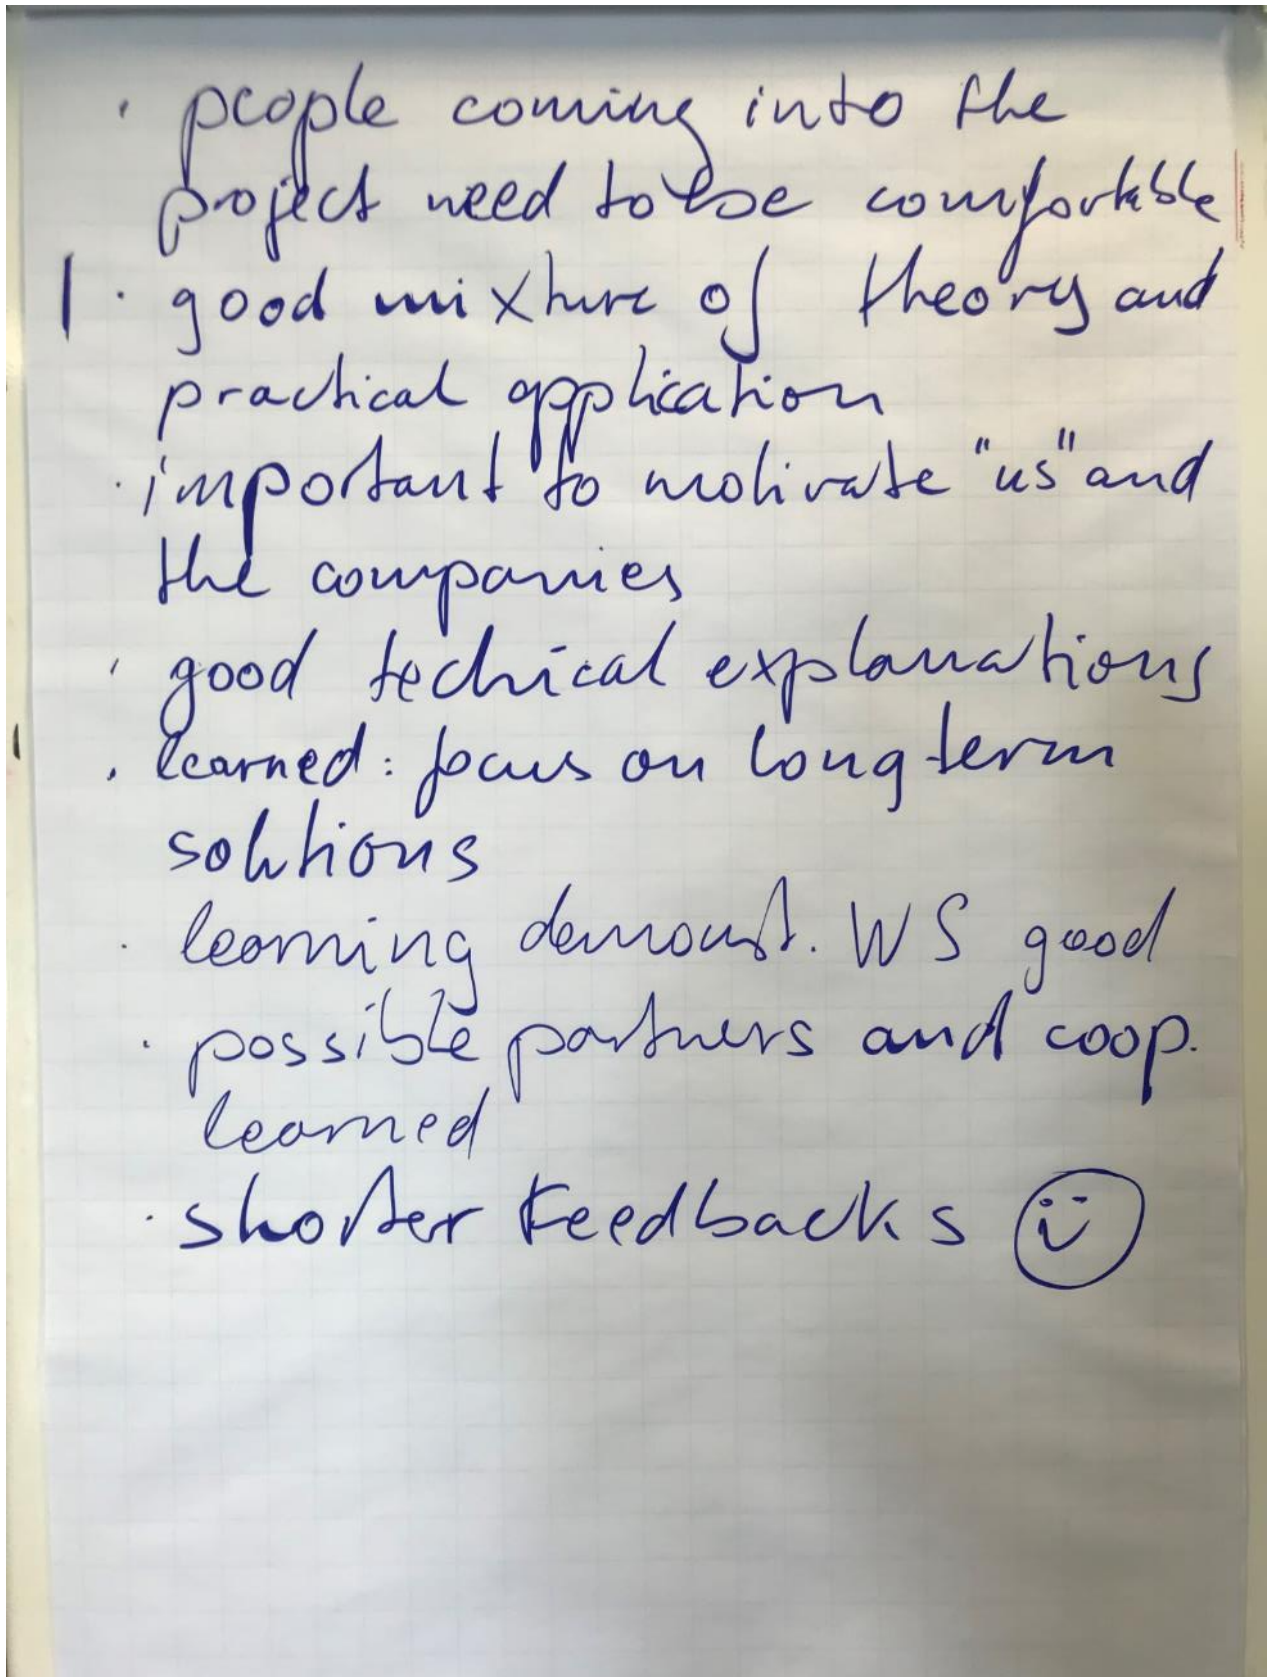 · people coming into the
project need to be comfortable
| · good mixture of theory and
practical application
· important to motivate "us" and
the companies
· good techical explanations
· learned: focus on long-term
solutions
· learning demonst. WS good
· possible partners and coop.
learned
· shorter Feedbacks